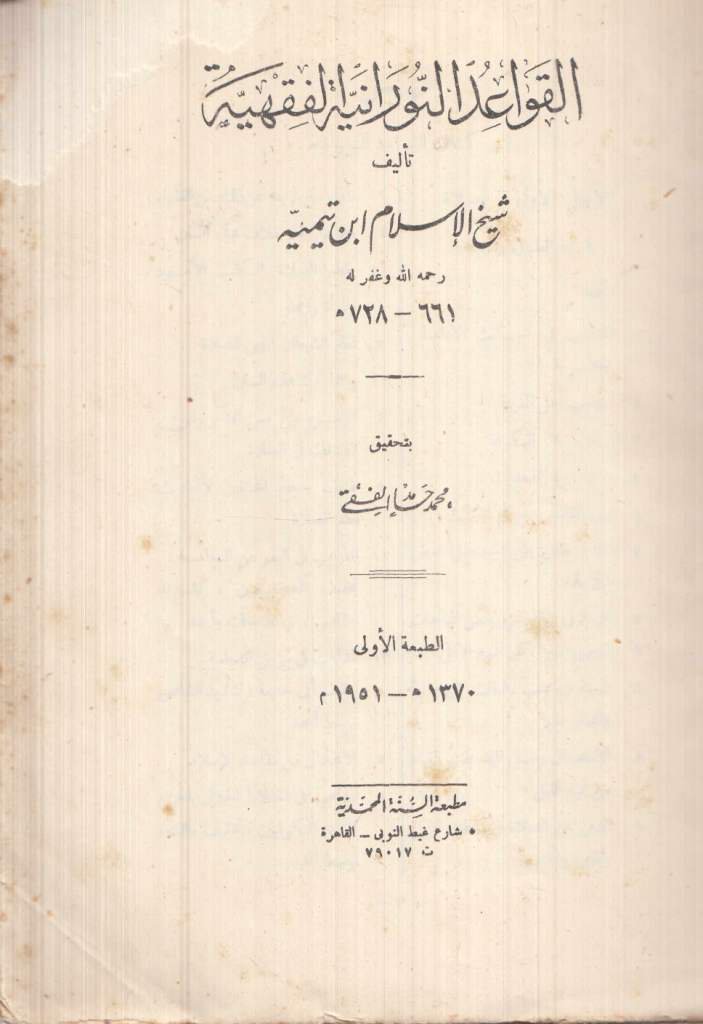 القَوَاعِدُ النُّورَانيَّة الفِقهيَّة
تأليف
شيخ الإسلام ابن تيميّه
رحمه الله وغفر له
٦٦١ – ٧٢٨ ه
بتحقيق
محمد حامد الفقي
الطبعة الأولى
١٣٧٠ ه – ١٩٥١ م
مطبعة السُّنّة المحمّديّة
٥ شارع غيط النوبى – القاهرة
ت ٧٩٠١٧